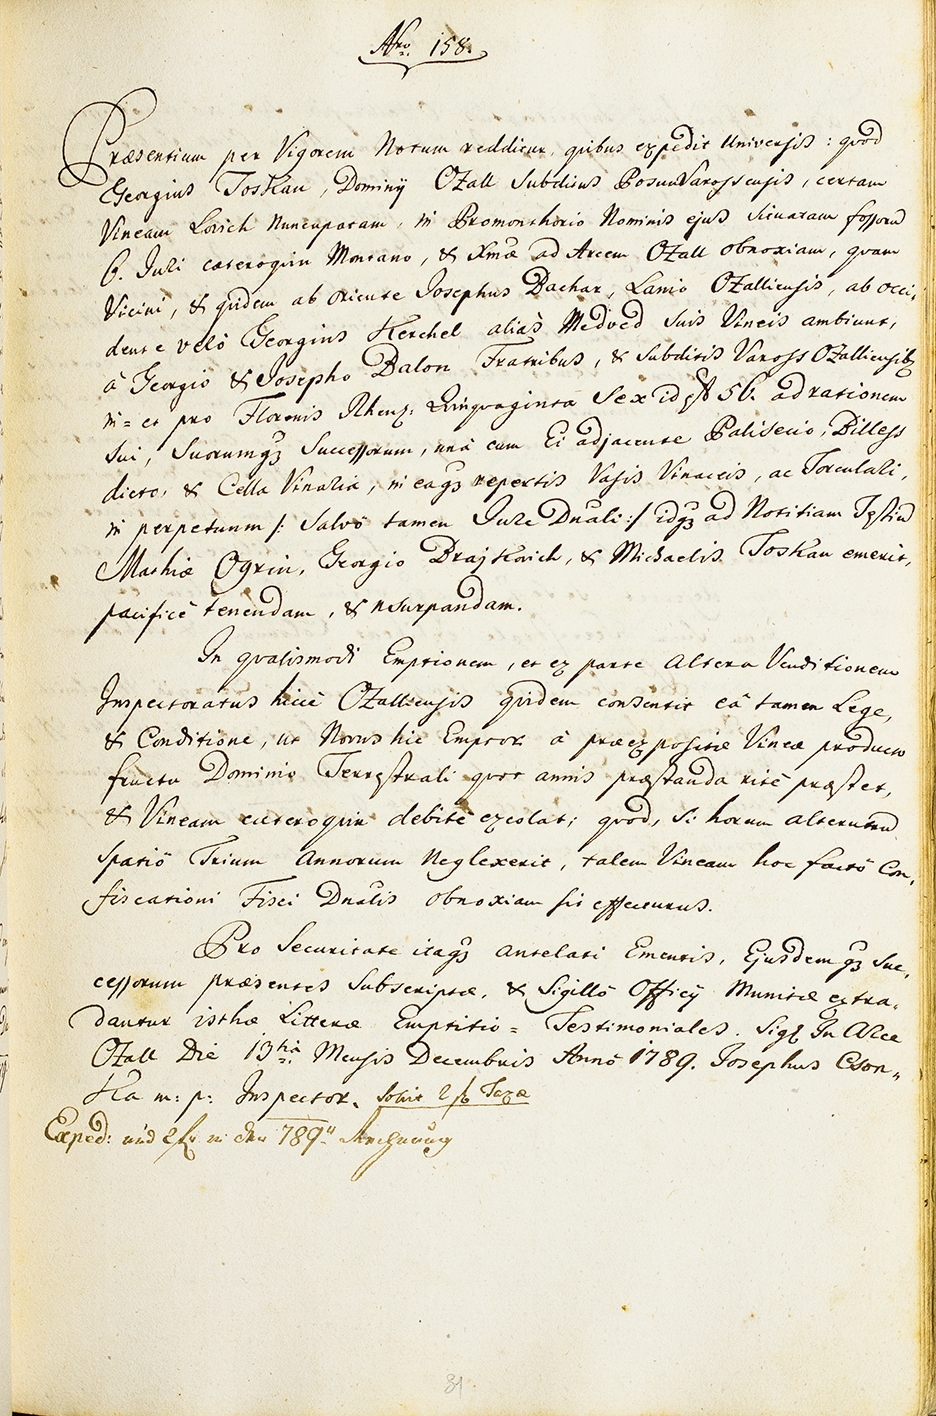 Nro. 158.
Præsentium per Vigorem Notum redditur, quibus expedit Universis: quod
Georgius Toskan, Dominij Ozall Subditus PosunVarossensis, certam
Vineam Lovich Nuncupatam, in Promonthorio Nominis ejus Situatam fossorū
6. Juri cæteroquin Montano, & Xmæ ad Arcem Ozall obnoxiam, quam
Vicini, & quidem ab oriente Josephus Bachar, Lanio Ozalliensis, ab occi,
dente velò Georgius Herchel aliàs Medved suis Vineis ambiunt,
à Georgio & Josepho Balon Fratribus, & Subditis Vaross Ozalliensibȝ
in = et pro Florenis Rhenz: Quinquaginta Sex id est 56. ad rationem
sui, Suorumqȝ Successorum, unà cum Ei adjacente Palisecio, Billess
dicto, & Cella Vinaria, in eaqȝ repertis Vasis Vinaceis, ac Torculari,
in perpetuum /: Salvô tamen Jure Dnāli :/ idqȝ ad Notitiam Testiū
Mathiæ Ogrin, Georgio Brajkovich, & Michaelis Toskan emerit,
pacificè tenendam, & usurpandam.
In qualismodi Emptionem, et ex parte altera Venditionem
Inspectoratus hicce Ozalliensis quidem consentit eâ tamen Lege,
& Conditione, ut Novus hic Emptor à præexpositæ Vineæ producto
fructu Dominio Terrestrali quot annis præstanda ritè præstet,
& Vineam cæteroquin debitè excolat; quod, si horum alterutrū
spatiô Trium annorum neglexerit, talem Vineam hoc factô Con,
fiscationi Fisci Dnālis obnoxiam sit effecturus.
Pro Securitate itaqȝ antelati Ementis, Ejusdemqȝ Suc,
cessorum præsentes subscriptæ, & Sigillô Officij Munitæ extra,
dantur isthæ Litteræ Emptitio = Testimoniales. Sigl. In Arce
Ozall Die 13tia Mensis Decembris Annô 1789. Josephus Cson,,
Ka m: p: Inspector. solvit 2 f Taxæ
Exped: und 2 f in der 789er Rechnung
31